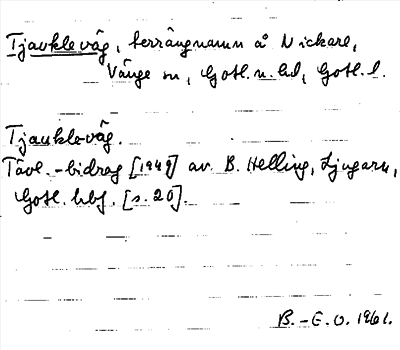 Tjaukleväg, terrängnamn å Nickarve,
Vänge sn, Gotl. n. hd, Gotl. l.
Tjaukleväg.
Tävl.-bidrag [1949] av B. Helling, Ljugarn,
Gotl. hbf. [s. 20].
B.-E. O. 1961.